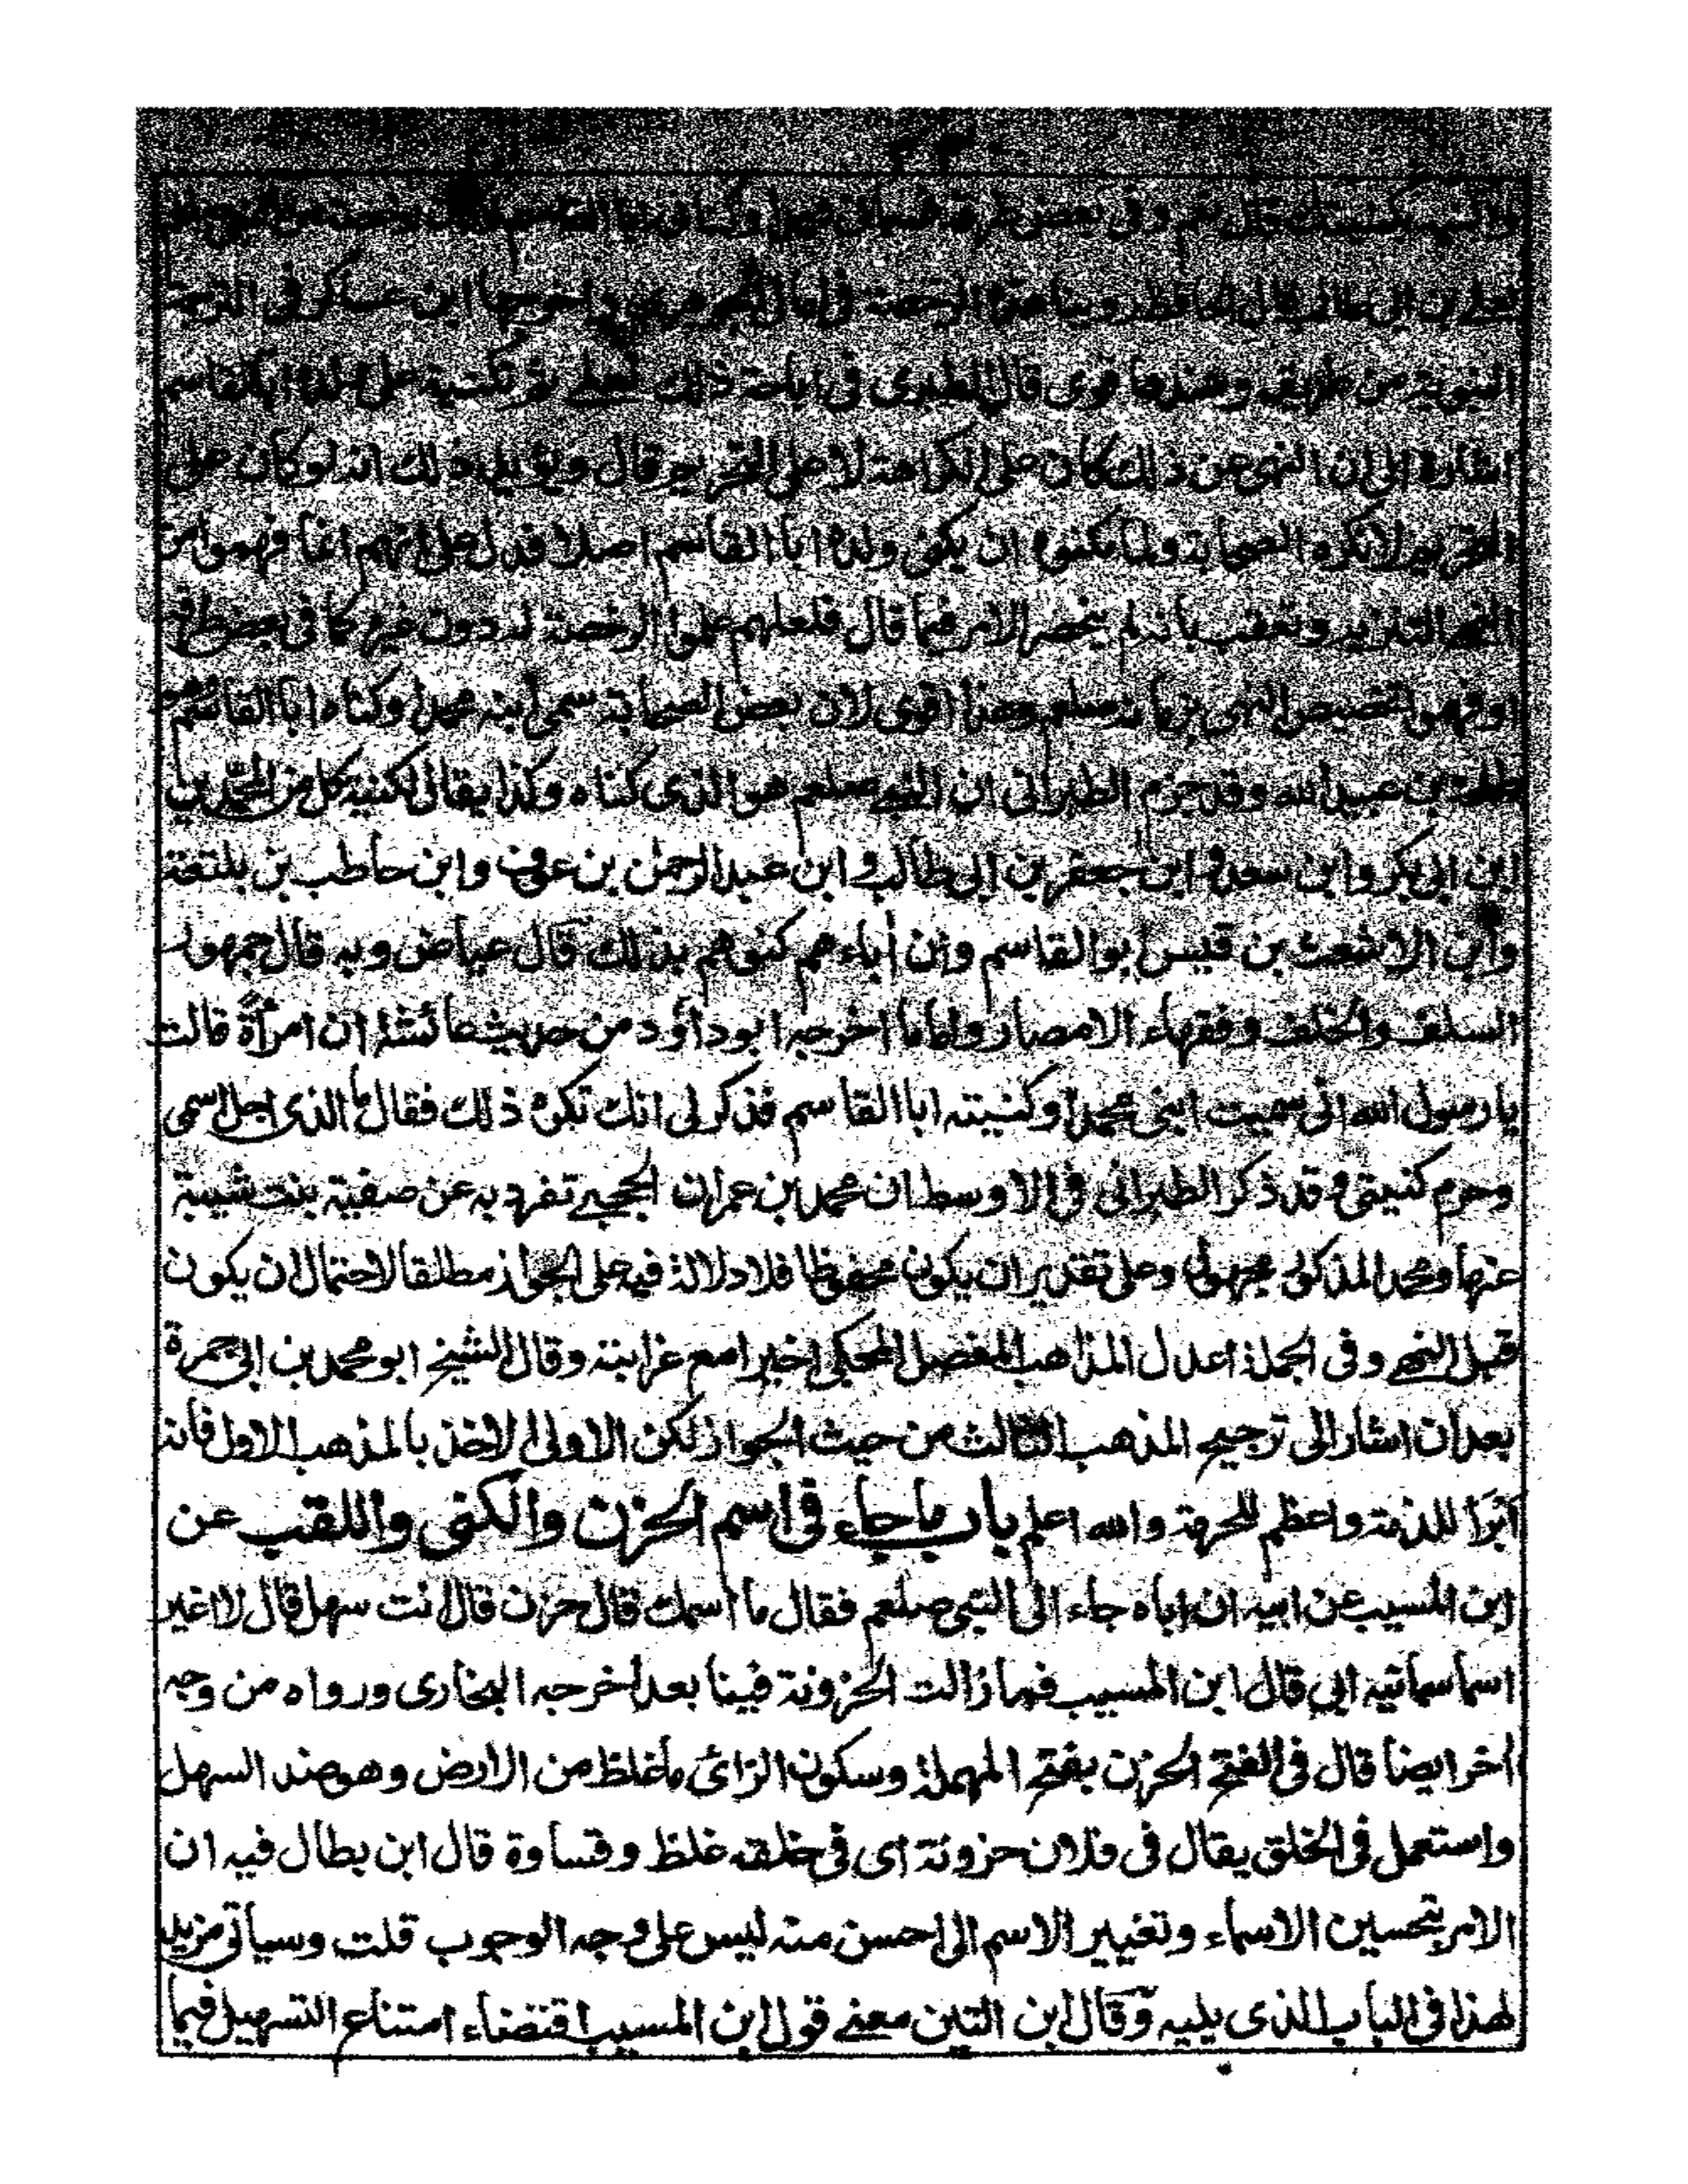 وكنيته بكنيتك قال نعم وفي بعض طرقه فسماني محمدا وكناني ابا القاسم وكانت رخصة من النبي صلعم
لعلي بن ابي طالب قال الحافظ روينا هذه الرخصة في امالي الجوهري واخرجها ابن عساكر في الترجمة
النبوية من طريقه وسندها قوي قال الطبري في اباحة ذلك لعلي ثم تكنية علي ولده ابا القاسم
اشارة الى ان النهي عن ذلك كان على الكراهة لا على التحريم قال ويؤيد ذلك انه لو كان على
التحريم لانكره الصحابة ولما مكنوه ان يكني ولده ابا القاسم اصلا فدل على انهم انما فهموا من
النهي التنزيه وتعقب بانه لم ينحصر الامر فيما قال فلعلهم علموا الرخصة له دون غيره كما في بعض طرقه
او فهموا تخصيص النهي بزمانه صلعم وهذا اقوى لان بعض الصحابة سمى ابنه محمدا وكناه ابا القاسم وهو
طلحة بن عبيد الله وقد جزم الطبراني ان النبي صلعم هو الذي كناه وكذا يقال لكنية كل من المحمدين
ابن ابي بكر وابن سعد وابن جعفر بن ابي طالب وابن عبد الرحمن بن عوف وابن حاطب بن بلتعة
وابن الاشعث بن قيس ابو القاسم وان أباءهم كنوهم بذلك قال عياض وبه قال جمهور
السلف والخلف وفقهاء الامصار واما ما اخرجه ابو داود من حديث عائشة ان امرأة قالت
يا رسول الله اني سميت ابني محمدا وكنيته ابا القاسم فذكر لي انك تكره ذلك فقال ما الذي احل اسمى
وحرم كنيتي وقد ذكر الطبراني في الاوسط ان محمد بن عمران الحجبي تفرد به عن صفية بنت شيبة
عنها ومحمد المذكور مجهول وعلى تقدير ان يكون محفوظا فلا دلالة فيه على الجواز مطلقا لاحتمال ان يكون
قبل النهي وفي الجملة اعدل المذاهب المفصل المحكي اخيرا مع غرابته وقال الشيخ ابو محمد بن ابي جمرة
بعد ان اشار الى ترجيح المذهب الثالث من حيث الجواز لكن الاولى الاخذ بالمذهب الاول فانه
أبرأ للذمة واعظم للحرمة والله اعلم باب ما جاء في اسم الحزن والكنى واللقب عن
ابن المسيب عن ابيه ان اباه جاء الى النبي صلعم فقال ما اسمك قال حزن قال انت سهل قال لا اغير
اسما سمانيه ابي قال ابن المسيب فما زالت الحزونة فينا بعد أخرجه البخاري ورواه من وجه
أخر ايضا قال في الفتح الحزن بفتح المهملة وسكون الزائ ما غلظ من الارض وهو ضد السهل
واستعمل في الخلق يقال في فلان حزونة اى في خلقه غلظ وقساوة قال ابن بطال فيه ان
الامر بتحسين الاسماء وتغيير الاسم الى احسن منه ليس على وجه الوجوب قلت وسيأتي مزيد
لهذا في الباب الذي يليه وقال ابن التين معنى قول ابن المسيب اقتضاء امتناع التسهيل فيما